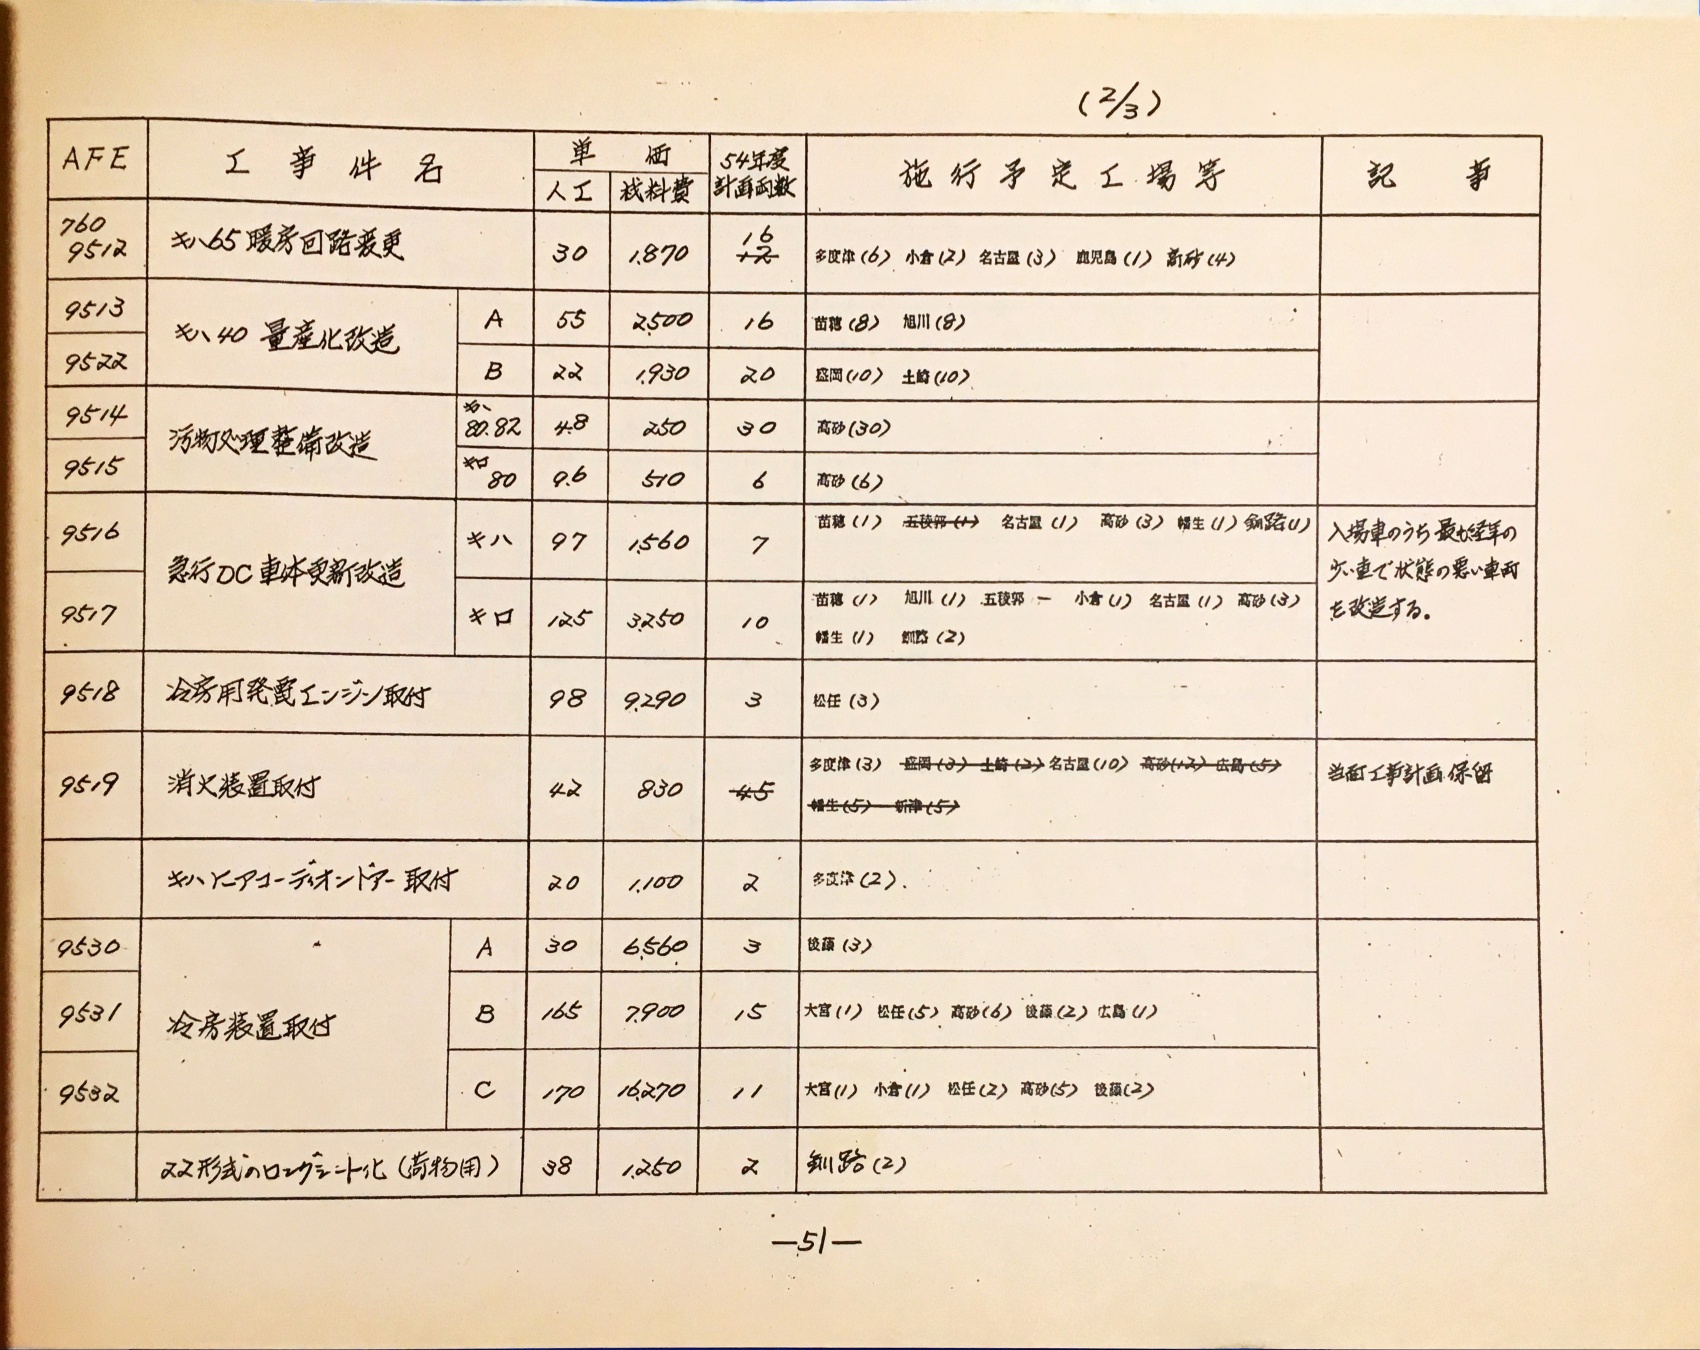 (2/3)
AFE 工事件名 単価 54年度計画両数 施行予定工場等 記事
人工 材料費
760 9512 キハ65暖房回路変更 30 1.870 16 12 多度津(6) 小倉(2) 名古屋(3) 鹿児島(1) 高砂(4)
9513 キハ40 量産化改造 A 55 2.500 16 苗穂(8) 旭川(8)
9522 B 22 1.930 20 盛岡(10) 土崎(10)
9514 汚物処理整備改造 キハ80.82 4.8 250 30 高砂(30)
9515 キロ80 9.6 510 6 高砂(6)
9516 急行DC車体更新改造 キハ 97 1.560 7 苗穂(1) 五稜郭(1) 名古屋(1) 高砂(3) 幡生(1) 釧路(1)
入場車のうち最も経年の
少い車で状態の悪い車両
を改造する。
9517 キロ 125 3.250 10 苗穂(1) 旭川(1) 五稜郭 ー 小倉(1) 名古屋(1) 高砂(3)
幡生(1) 釧路(2)
9518 冷房用発電エンジン取付 98 9.290 3 松任(3)
9519 消火装置取付 42 830 45 多度津(3) 盛岡(3) 土崎(2) 名古屋(10) 高砂(12) 広島(5) 当面工事計画保留
幡生(5) 新津(5)
アコーディオンドアー取付 20 1.100 2 多度津(2)
9530 冷房装置取付 A 30 6.560 3 後藤(3)
9531 B 165 7.900 15 大宮(1) 松任(5) 高砂(6) 後藤(2) 広島(1)
9532 C 170 16.270 11 大宮(1) 小倉(1) 松任(2) 高砂(5) 後藤(2)
22形式のロングシート化(荷物用) 38 1.250 2 釧路(2)
—51—